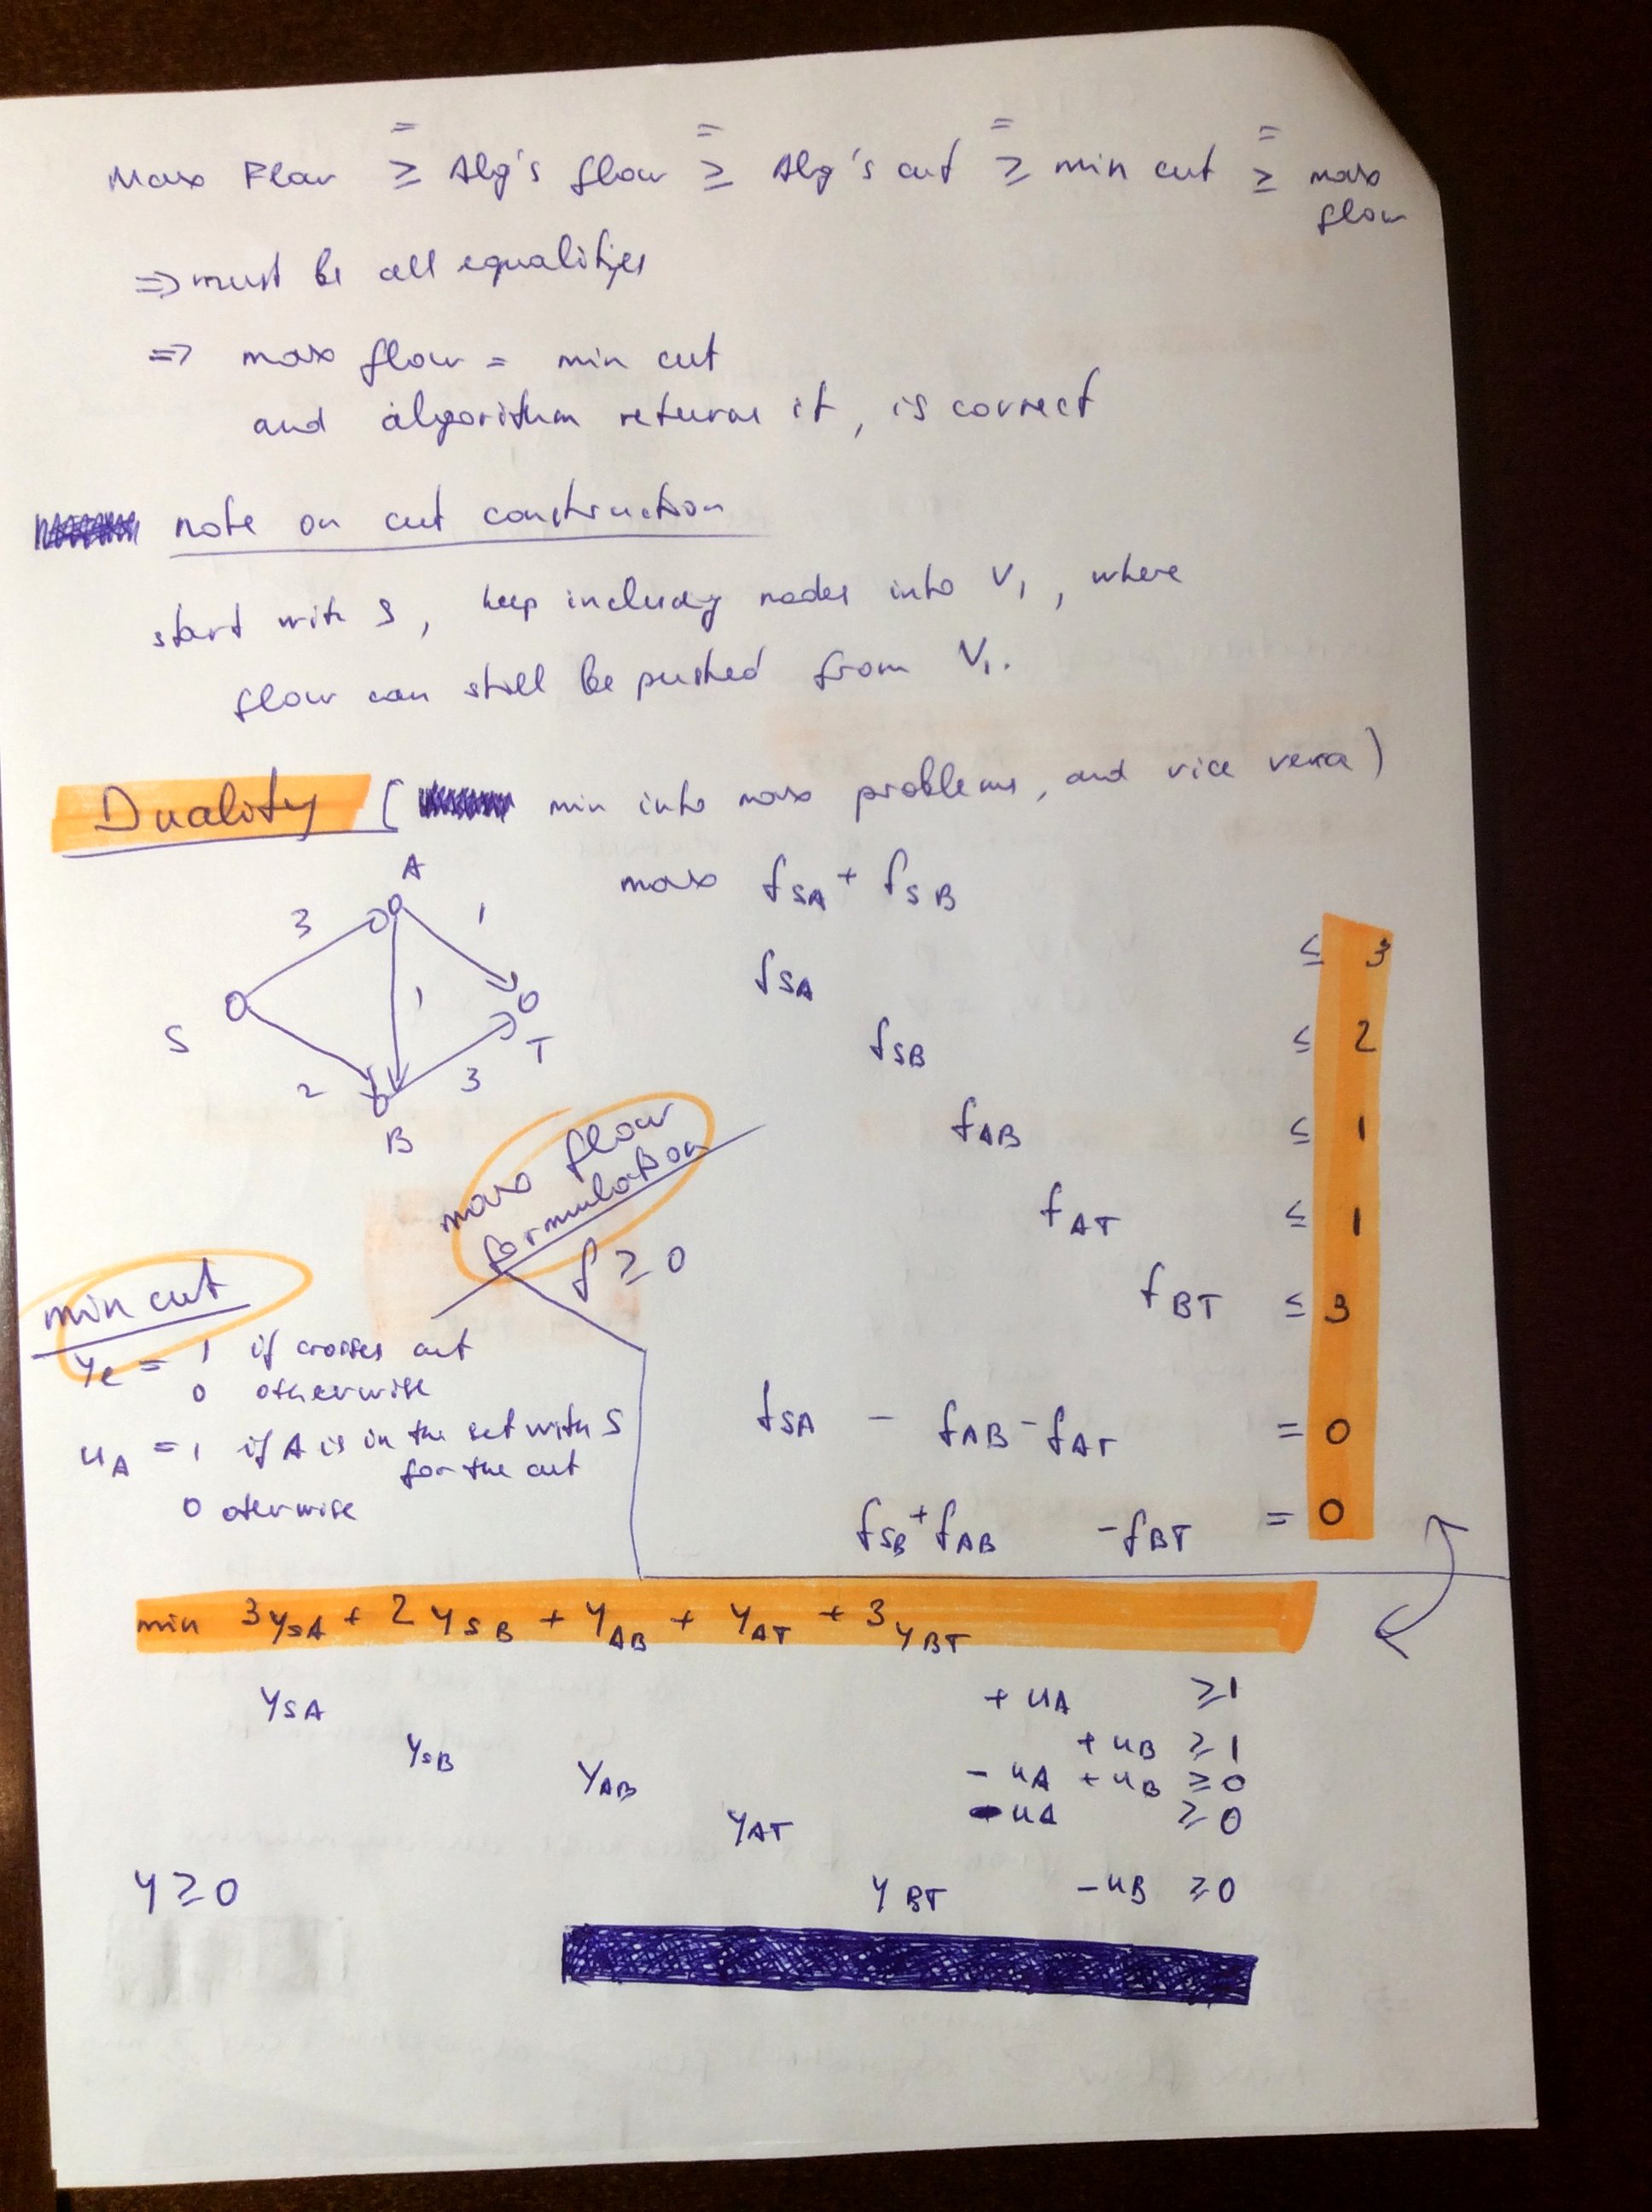 = = = =
Max Flow ≥ Alg's flow ≥ Alg's cut ≥ min cut ≥ max flow
⇒ must be all equalities
⇒ max flow = min cut
and algorithm returns it, is correct
note on cut construction
start with S, keep includg nodes into V₁, where
flow can still be pushed from V₁.
Duality ( min into max problems, and vice versa)
A
3
1
S
1
T
2
3
B
max f_SA + f_SB
f_SA ≤ 3
f_SB ≤ 2
f_AB ≤ 1
f_AT ≤ 1
f_BT ≤ 3
f_SA - f_AB - f_AT = 0
f_SB + f_AB - f_BT = 0
max flow
formulation
f ≥ 0
min cut
y_e = 1 if crosses cut
0 otherwise
u_A = 1 if A is in the set with S
for the cut
0 oterwise
min 3y_SA + 2y_SB + y_AB + y_AT + 3y_BT
y_SA + u_A ≥ 1
y_SB + u_B ≥ 1
y_AB - u_A + u_B ≥ 0
y_AT - u_A ≥ 0
y ≥ 0 y_BT - u_B ≥ 0